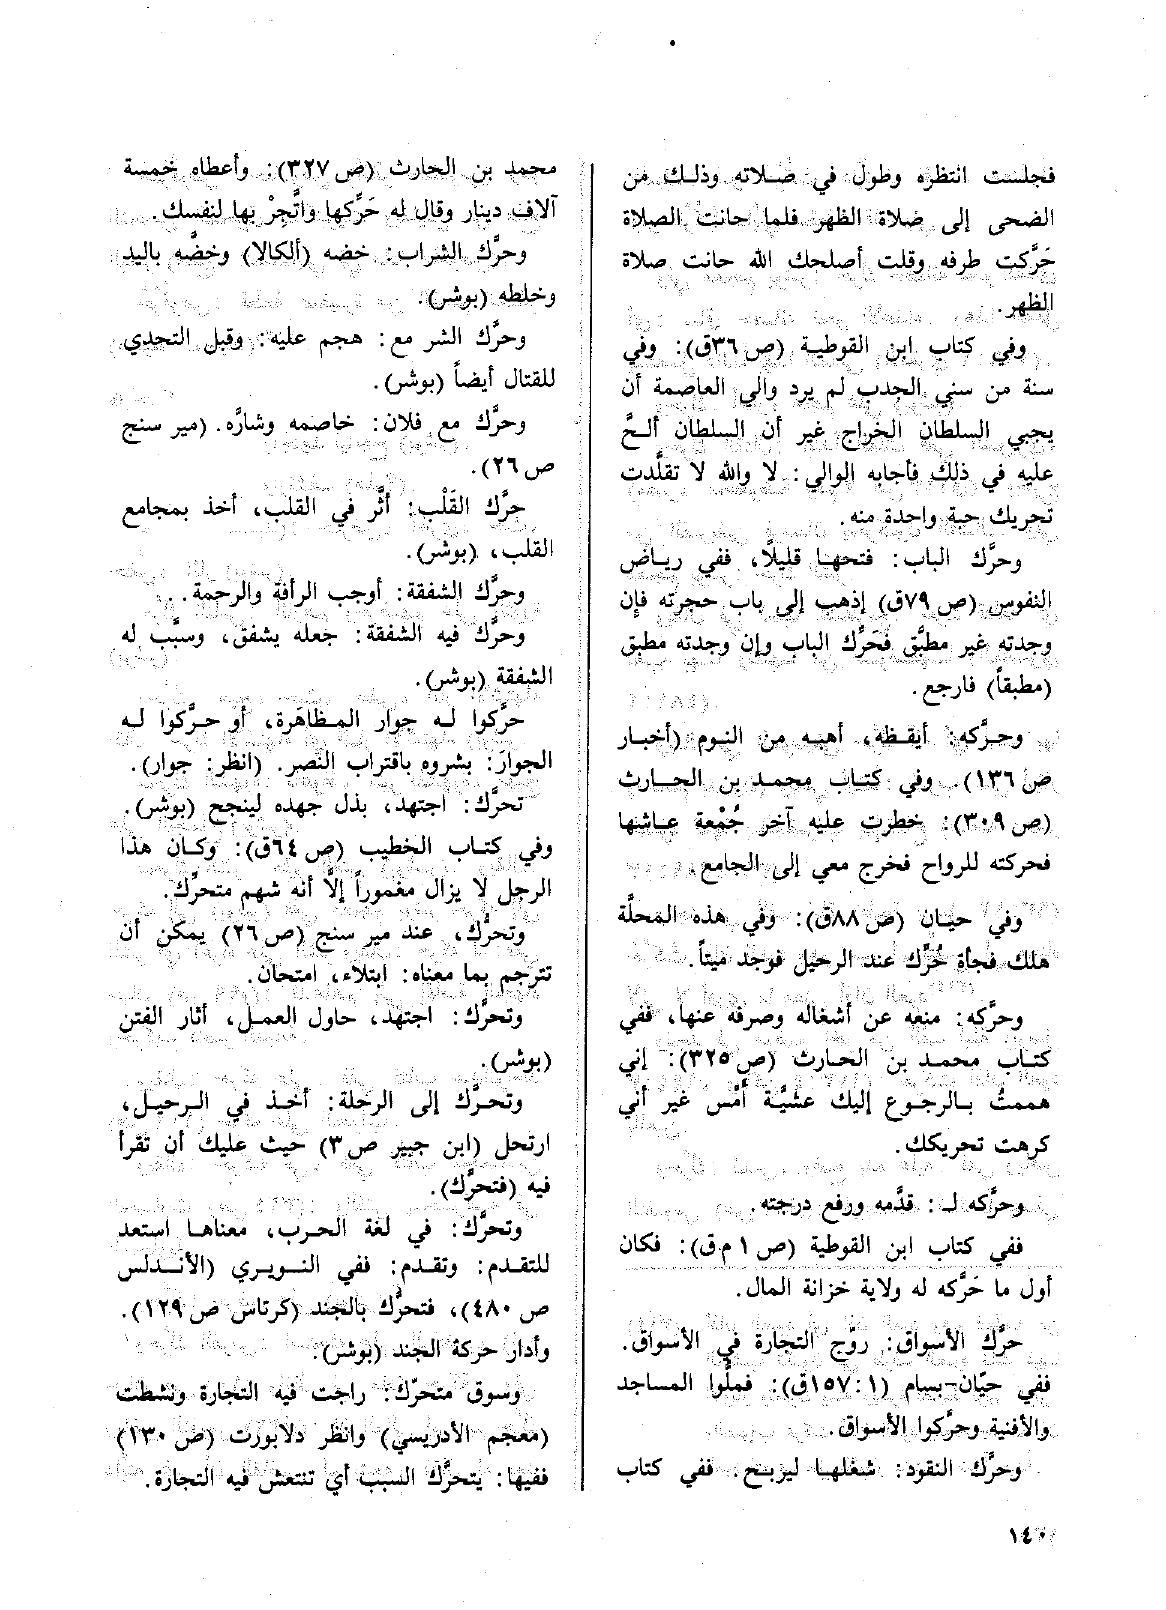 فجلست انتظره وطول في صلاته وذلك من
الضحى إلى صلاة الظهر فلما حانت الصلاة
حَرَّكت طرفه وقلت أصلحك الله حانت صلاة
الظهر.
وفي كتاب ابن القوطية (ص٣٦ق): وفي
سنة من سني الجدب لم يرد والي العاصمة أن
يجبي السلطان الخراج غير أن السلطان ألحَّ
عليه في ذلك فأجابه الوالي: لا والله لا تقلَّدت
تحريك حبة واحدة منه.
وحرَّك الباب: فتحها قليلًا، ففي رياض
النفوس (ص٧٩ق) إذهب إلى باب حجرته فإن
وجدته غير مطبَّق فَحَرِّك الباب وإن وجدته مطبق
(مطبقاً) فارجع.
وحرَّكه: أيقظه، أهبه من النوم (أخبار
ص١٣٦). وفي كتاب محمد بن الحارث
(ص٣٠٩): خطرت عليه آخر جُمْعة عاشها
فحركته للرواح فخرج معي إلى الجامع.
وفي حيان (ص٨٨ق): وفي هذه المحلَّة
هلك فجأة حُرِّك عند الرحيل فوجد ميتاً.
وحرَّكه: منعه عن أشغاله وصرفه عنها، ففي
كتاب محمد بن الحارث (ص٣٢٥): إني
هممتُ بالرجوع إليك عشيَّة أمْس غير أني
كرهت تحريكك.
وحرَّكه لـ: قدَّمه ورفع درجته.
ففي كتاب ابن القوطية (ص١م.ق): فكان
أول ما حَرَّكه له ولاية خزانة المال.
حرَّك الأسواق: روّج التجارة في الأسواق.
ففي حيّان-بسام (١٥٧:١ق): فملّوا المساجد
والأفنية وحرَّكوا الأسواق.
وحرَّك النقود: شغلها ليربح. ففي كتاب
محمد بن الحارث (ص٣٢٧): وأعطاه خمسة
آلاف دينار وقال له حَرِّكها واتَّجِرْ بها لنفسك.
وحرَّك الشراب: خضه (ألكالا) وخضَّه باليد
وخلطه (بوشر).
وحرَّك الشر مع: هجم عليه: وقبل التحدي
للقتال أيضاً (بوشر).
وحرَّك مع فلان: خاصمه وشارَّه. (مير سنج
ص٢٦).
حرَّك القَلْب: أثَّر في القلب، أخذ بمجامع
القلب، (بوشر).
وحرَّك الشفقة: أوجب الرأفة والرحمة..
وحرَّك فيه الشفقة: جعله يشفق، وسبَّب له
الشفقة (بوشر).
حرَّكوا له جوار المظاهَرة، أو حرَّكوا له
الجوارَ: بشروه باقتراب النصر. (انظر: جوار).
تحرَّك: اجتهد، بذل جهده لينجح (بوشر).
وفي كتاب الخطيب (ص٦٤ق): وكان هذا
الرجل لا يزال مغموراً إلَّا أنه شهم متحرِّك.
وتحرُّك، عند مير سنج (ص٢٦) يمكن أن
تترجم بما معناه: ابتلاء، امتحان.
وتحرَّك: اجتهد، حاول العمل، أثار الفتن
(بوشر).
وتحرَّك إلى الرحلة: أخذ في الرحيل،
ارتحل (ابن جبير ص٣) حيث عليك أن تقرأ
فيه (فتحرَّك).
وتحرَّك: في لغة الحرب، معناها استعد
للتقدم: وتقدم: ففي النويري (الأندلس
ص٤٨٠)، فتحرَّك بالجند (كرتاس ص١٢٩).
وأدار حركة الجند (بوشر).
وسوق متحرّك: راجت فيه التجارة ونشطت
(معجم الأدريسي) وانظر دلابورت (ص١٣٠)
ففيها: يتحرَّك السبب أي تنتعش فيه التجارة.
١٤٠